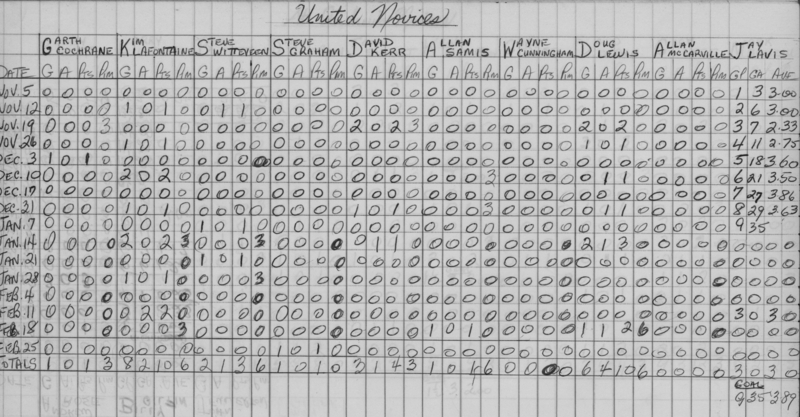 United Novices
GARTH COCHRANE KIM LAFONTAINE STEVE WITTEVEEN STEVE GRAHAM DAVID KERR ALLAN SAMIS WAYNE CUNNINGHAM DOUG LEWIS ALLAN MCCARVILLE JAY LAVIS
DATE G A Pts Pim G A Pts Pim G A Pts Pim G A Pts Pim G A Pts Pim G A Pts Pim G A Pts Pim G A Pts Pim G A Pts Pim GP GA AVE
NOV. 5 0 0 0 0 0 0 0 0 0 0 0 0 0 0 0 0 0 0 0 0 0 0 0 0 0 0 0 0 0 0 0 0 0 0 0 0 1 3 3.00
NOV. 12 0 0 0 0 1 0 1 0 0 1 1 0 0 0 0 0 0 0 0 0 0 0 0 0 0 0 0 0 0 0 0 0 0 0 0 0 2 6 3.00
NOV. 19 0 0 0 3 0 0 0 0 0 0 0 0 0 0 0 0 2 0 2 3 0 0 0 0 0 0 0 0 2 0 2 0 0 0 0 0 3 7 2.33
NOV. 26 0 0 0 0 1 0 1 0 0 0 0 0 0 0 0 0 0 0 0 0 0 0 0 0 0 0 0 0 1 0 1 0 0 0 0 0 4 11 2.75
DEC. 3 1 0 1 0 0 0 0 0 0 0 0 0 0 0 0 0 0 0 0 0 0 0 0 0 0 0 0 0 0 0 0 0 0 0 0 0 5 18 3.60
DEC. 10 0 0 0 0 2 0 2 0 0 0 0 0 0 0 0 0 0 0 0 0 0 0 0 3 0 0 0 0 0 1 1 0 0 0 0 0 6 21 3.50
DEC. 17 0 0 0 0 0 0 0 0 0 0 0 0 0 0 0 0 0 0 0 0 0 0 0 0 0 0 0 0 0 0 0 0 0 0 0 0 7 27 3.86
DEC. 31 0 0 0 0 1 0 1 0 0 0 0 0 0 0 0 0 1 0 1 0 0 0 0 3 0 0 0 0 0 1 1 0 0 0 0 0 8 29 3.63
JAN. 7 0 0 0 0 0 0 0 0 1 0 1 0 0 0 0 0 0 0 0 0 0 0 0 0 0 0 0 0 0 0 0 0 0 0 0 0 9 35
JAN. 14 0 0 0 0 2 0 2 3 0 0 0 3 0 0 0 0 0 1 1 0 0 0 0 0 0 0 0 0 2 1 3 0 0 0 0 0 0 0 0
JAN. 21 0 0 0 0 0 0 0 0 1 0 1 0 0 0 0 0 0 0 0 0 0 0 0 0 0 0 0 0 0 0 0 0 0 0 0 0 0 0 0
JAN. 28 0 0 0 0 1 0 1 0 0 0 0 3 0 0 0 0 0 0 0 0 0 0 0 0 0 0 0 0 0 0 0 0 0 0 0 0 0 0 0
FEB. 4 0 0 0 0 0 0 0 0 0 0 0 0 0 0 0 0 0 0 0 0 0 0 0 0 0 0 0 0 0 0 0 0 0 0 0 0 0 0 0
FEB. 11 0 0 0 0 0 2 2 0 0 0 0 0 0 0 0 0 0 0 0 0 0 0 0 0 0 0 0 0 0 0 0 0 0 0 0 0 3 0 3 0
FEB. 18 0 0 0 0 0 0 0 3 0 0 0 0 0 0 0 0 0 0 0 0 1 0 1 0 0 0 0 0 1 1 2 6 0 0 0 0 0 0 0
FEB. 25 0 0 0 0 0 0 0 0 0 0 0 0 1 0 1 0 0 0 0 0 0 0 0 0 0 0 0 0 0 0 0 0 0 0 0 0 0 0 0
TOTALS 1 0 1 3 8 2 10 6 2 1 3 6 1 0 1 0 3 1 4 3 1 0 1 6 0 0 0 0 6 4 10 6 0 0 0 0 3 0 3 0
GOAL
9 35 3.89